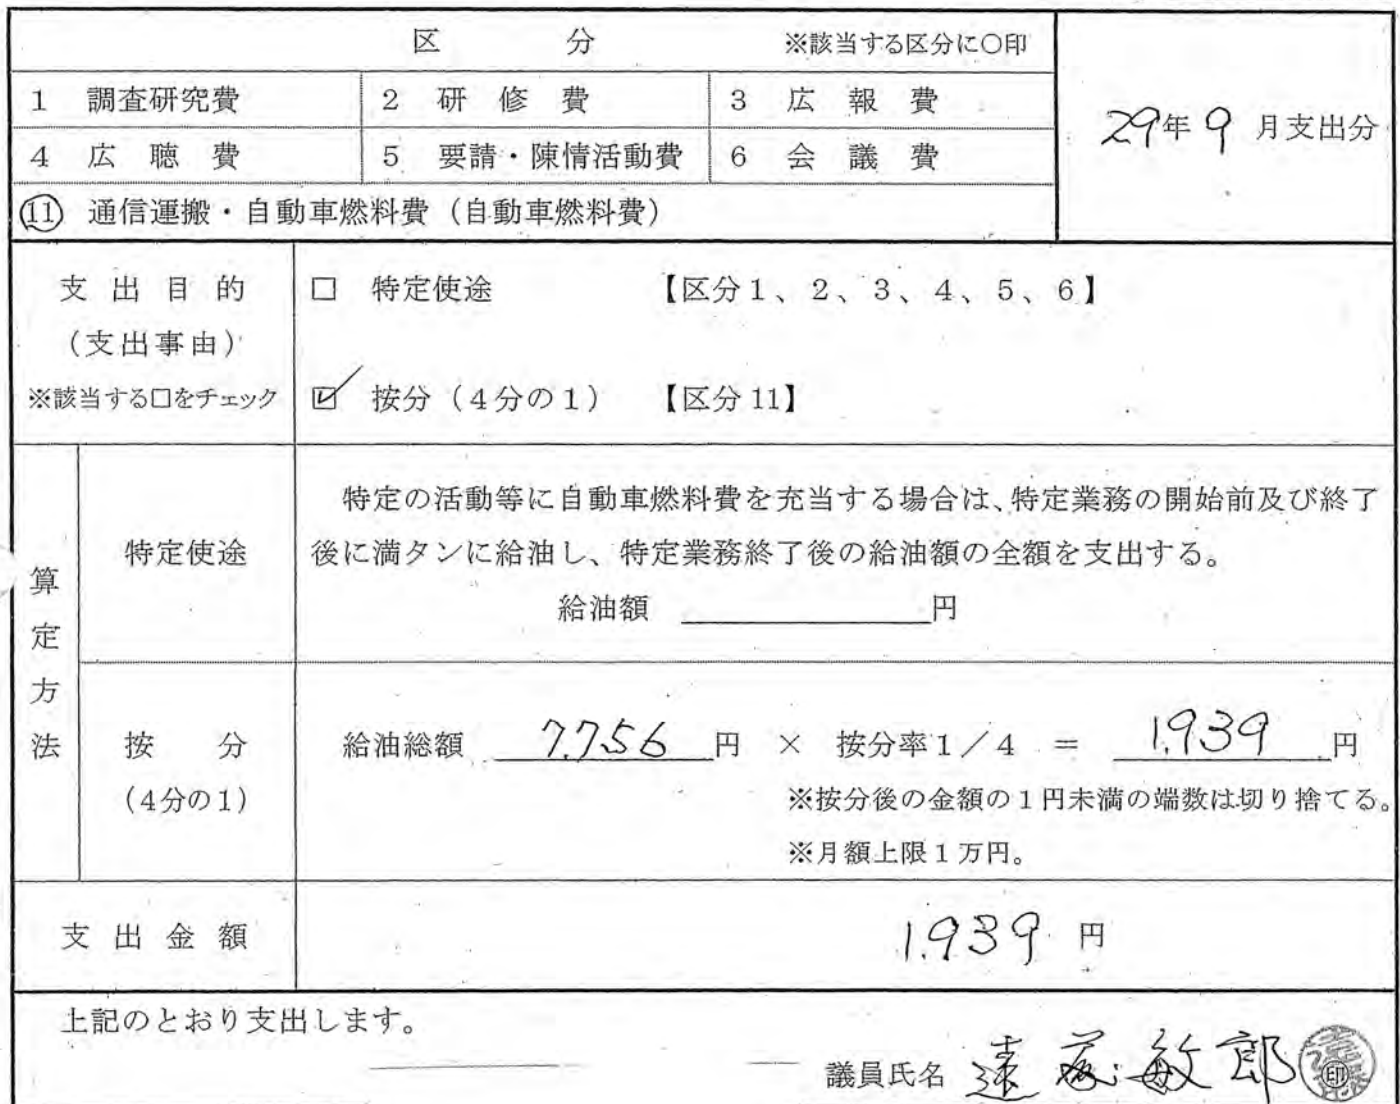 区 分 ※該当する区分に○印
1 調査研究費 2 研 修 費 3 広 報 費
29年9月支出分
4 広 聴 費 5 要請・陳情活動費 6 会 議 費
⑪ 通信運搬・自動車燃料費(自動車燃料費)
支 出 目 的
(支出事由)
※該当する□をチェック
□ 特定使途 【区分1、2、3、4、5、6】
☑ 按分(4分の1) 【区分11】
算定方法
特定使途
特定の活動等に自動車燃料費を充当する場合は、特定業務の開始前及び終了
後に満タンに給油し、特定業務終了後の給油額の全額を支出する。
給油額 円
按 分
(4分の1)
給油総額 7,756 円 × 按分率1/4 = 1,939 円
※按分後の金額の1円未満の端数は切り捨てる。
※月額上限1万円。
支 出 金 額 1,939 円
上記のとおり支出します。
議員氏名 遠藤敏郎 印